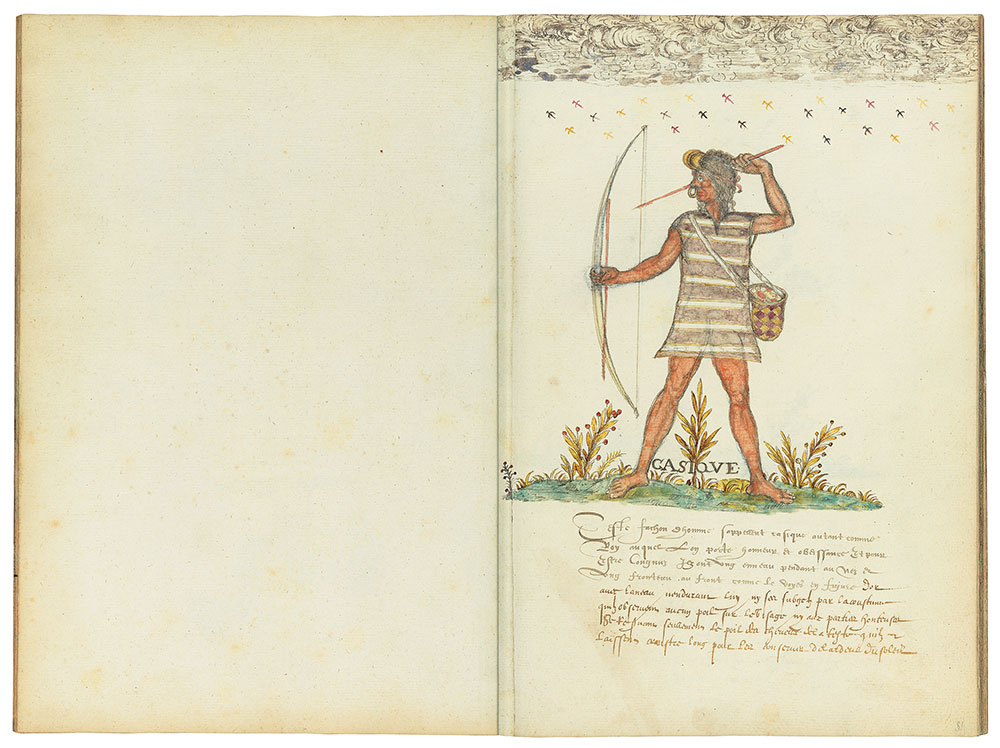 CASIQVE
Ceste fachon dhomme sappellent casique autant comme
Roy auquel lon porte honneur et obeissance Et pour
Estre Congnuz Ilz ont ung enneau pendant au nez et
Ung fronteau au front comme le voyes en figure dor
avec laneau luy ny ses par lacoustume
quilz observoir aucun poil sur le visage ny aux parties honteuses
seullement le poil des cheveulx de la teste quilz
laissent croistre long pour les conserver de lardeur du soleil